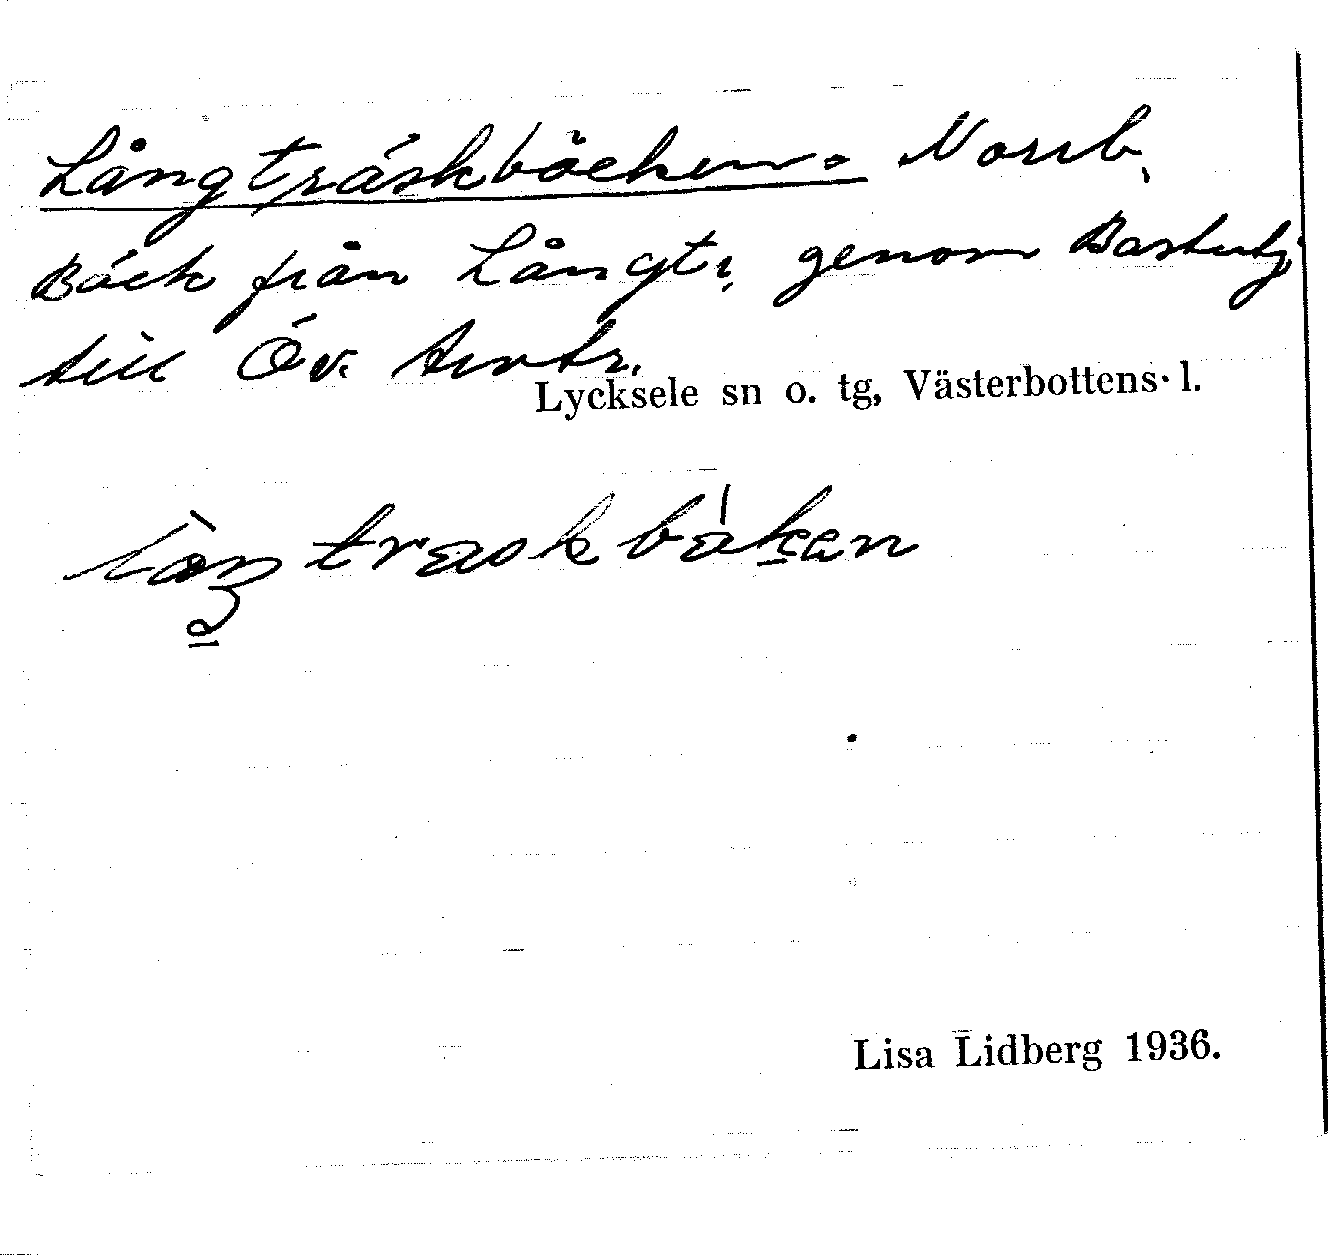 Långträskbäcken. Norrb.
Bäck från Långtr. genom Bastutj
till Öv.
Lycksele sn o. tg, Västerbottens l.
Lisa Lidberg 1936.